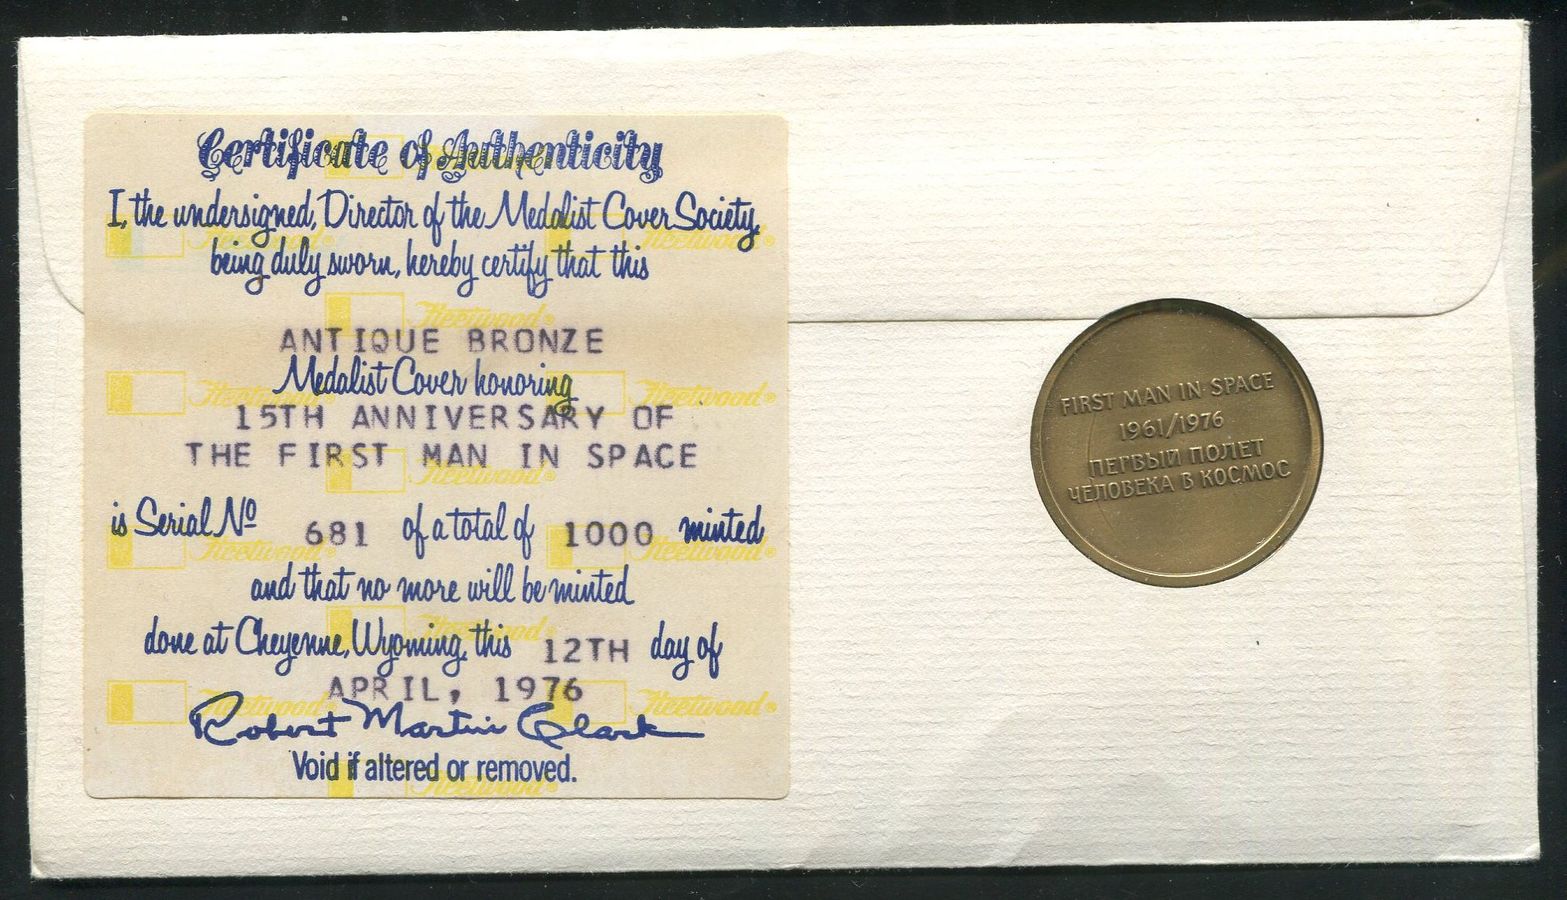 Certificate of Authenticity
I, the undersigned, Director of the Medalist Cover Society,
being duly sworn, hereby certify that this
ANTIQUE BRONZE
Medalist Cover honoring
15TH ANNIVERSARY OF
THE FIRST MAN IN SPACE
is Serial Nº 681 of a total of 1000 minted
and that no more will be minted
done at Cheyenne, Wyoming, this 12TH day of
APRIL, 1976
Robert Martin Clark
Void if altered or removed.
Fleetwood®
Fleetwood®
Fleetwood®
Fleetwood®
Fleetwood®
Fleetwood®
Fleetwood®
Fleetwood®
Fleetwood®
Fleetwood®
Fleetwood®
Fleetwood®
FIRST MAN IN SPACE
1961/1976
ПЕРВЫЙ ПОЛЕТ
ЧЕЛОВЕКА В КОСМОС